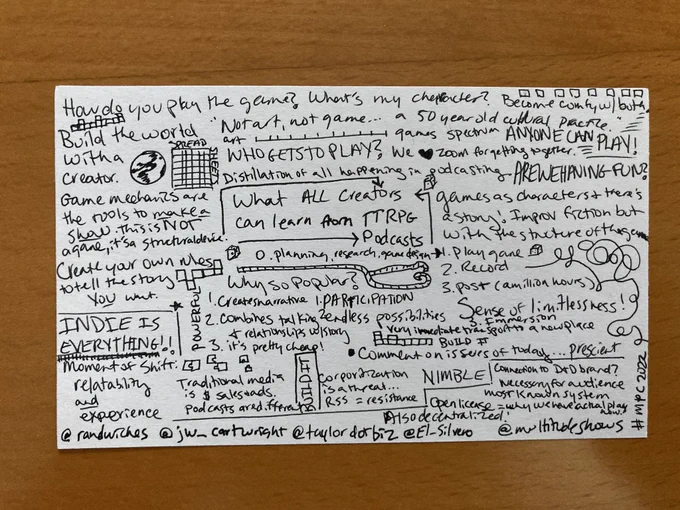 How do you play the game? What's my character? Become comfy w/ both.
Build the world
with a
creator.
SPREAD
SHEET
"Not art, not game... a 50 year old cultural practice."
art games spectrum
ANYONE CAN PLAY!
WHO GETS TO PLAY? We ♥ zoom for getting together.
Distillation of all happening in podcasting - ARE WE HAVING FUN?
Game mechanics are
the tools to make a
show. This is NOT
a game, it's a structural device.
Create your own rules
to tell the story
you want.
INDIE IS
EVERYTHING!!
What ALL Creators
can learn from TTRPG
Podcasts
games as characters + there's
a story! Improv fiction but
with the structure of the game
0. planning, research, game design
1. Play game
2. Record
3. post (a million hours)
Why so Popular?
POWERFUL
1. Creates narrative
2. combines talking
+ relationships w/ story
3. it's pretty cheap!
1. PARTICIPATION
2. endless possibilities
Sense of limitlessness!
Immersion
Very immediate transport to a new place
BUILD it
• Comment on issues of today... prescient
Moment of Shift:
relatability
and
experience
Traditional media
is $ sales + ads.
Podcasts are different
BUILD it
Corporitization
is a threat...
RSS = resistance
Also decentralized!
NIMBLE
Connection to D+D brand?
Necessary for audience
most known system
Open license = why we have actual play
now!
# MPC 2022
@randwiches @jw_cartwright @taylordotbiz @El-Silvero @multitudeshows